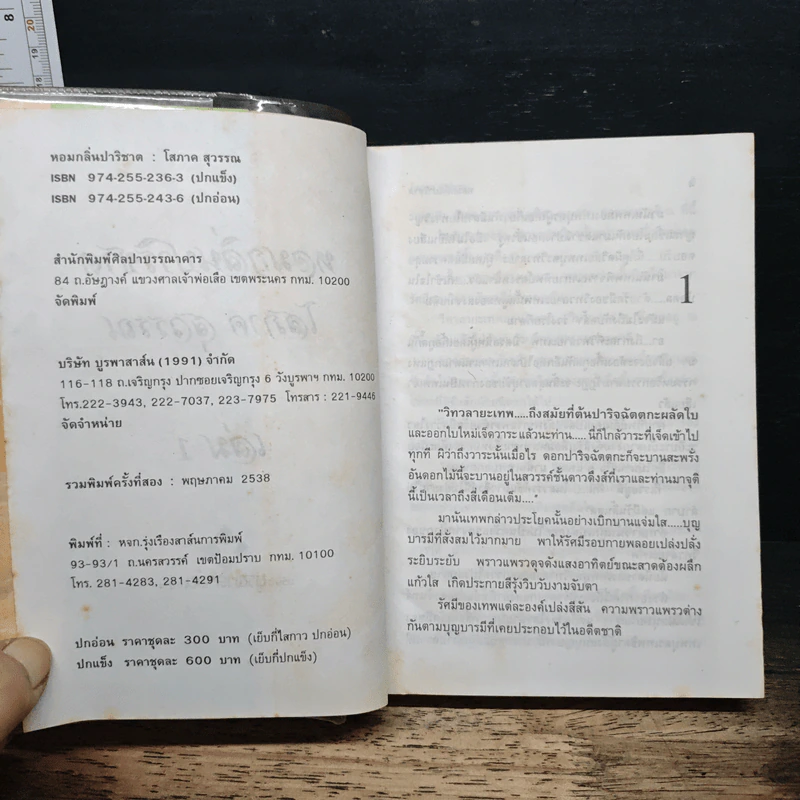 หอมกลิ่นปาริชาต : โสภาค สุวรรณ
ISBN 974-255-236-3 (ปกแข็ง)
ISBN 974-255-243-6 (ปกอ่อน)
สำนักพิมพ์ศิลปาบรรณาคาร
84 ถ.อัษฎางค์ แขวงศาลเจ้าพ่อเสือ เขตพระนคร กทม. 10200
จัดพิมพ์
บริษัท บูรพาสาส์น (1991) จำกัด
116-118 ถ.เจริญกรุง ปากซอยเจริญกรุง 6 วังบูรพาฯ กทม. 10200
โทร.222-3943, 222-7037, 223-7975 โทรสาร : 221-9446
จัดจำหน่าย
รวมพิมพ์ครั้งที่สอง : พฤษภาคม 2538
พิมพ์ที่ : หจก.รุ่งเรืองสาส์นการพิมพ์
93-93/1 ถ.นครสวรรค์ เขตป้อมปราบ กทม. 10100
โทร. 281-4283, 281-4291
ปกอ่อน ราคาชุดละ 300 บาท (เย็บกี่ไสกาว ปกอ่อน)
ปกแข็ง ราคาชุดละ 600 บาท (เย็บกี่ปกแข็ง)
1
"วิทวลายะเทพ.....ถึงสมัยที่ต้นปาริจฉัตตกะผลัดใบ
และออกใบใหม่เจ็ดวาระ แล้วนะท่าน..... นี่ก็ใกล้วาระที่เจ็ดเข้าไป
ทุกที ผิว่าถึงวาระนั้นเมื่อไร ดอกปาริจฉัตตกะก็จะบานสะพรั่ง
อันดอกไม้นี้จะบานอยู่ในสวรรค์ชั้นดาวดึงส์ที่เราและท่านมาจุติ
นี้เป็นเวลาถึงสี่เดือนเต็ม...."
มานันเทพกล่าวประโยคนั้นอย่างเบิกบานแจ่มใส.....บุญ
บารมีที่สั่งสมไว้มากมาย พาให้รัศมีรอบกายพลอยเปล่งปลั่ง
ระยิบระยับ พราวแพรวดุจดังแสงอาทิตย์ขณะสาดต้องผลึก
แก้วใส เกิดประกายสีรุ้งวิบวับงามจับตา
รัศมีของเทพแต่ละองค์เปล่งสีสัน ความพราวแพรวต่าง
กันตามบุญบารมีที่เคยประกอบไว้ในอดีตชาติ
8
20
19
18